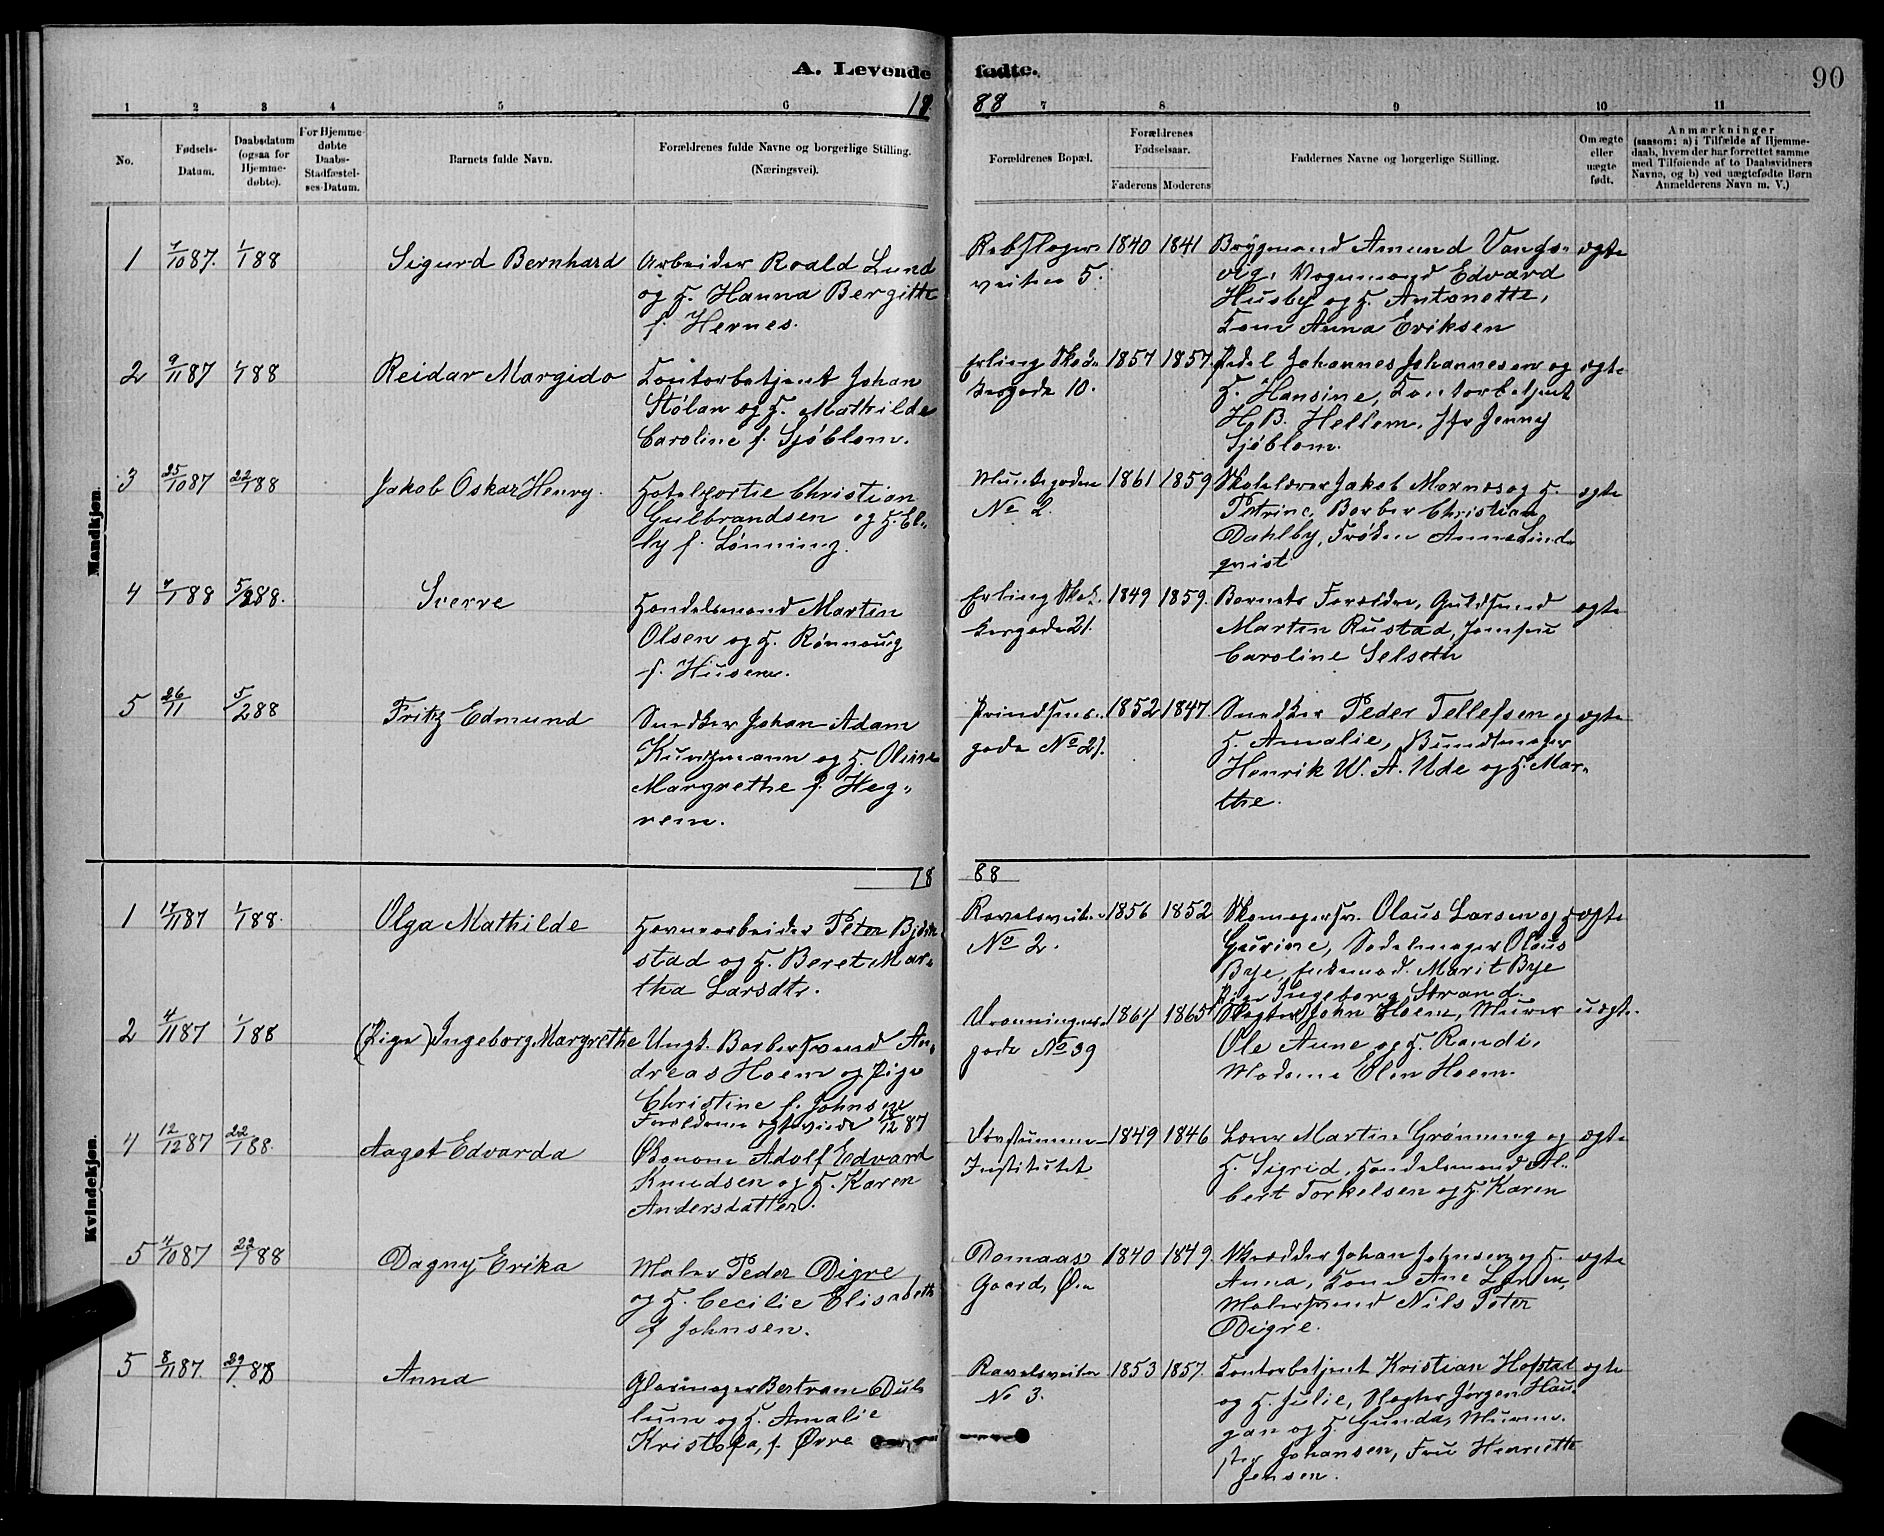 A. Levende fødte.
90
1888
1 2 3 4 5 6 7 8 9 10 11
No.
Fødsels-
Datum.
Daabsdatum
(ogsaa for
Hjemme-
døbte).
For Hjemme-
døbte
Daabs-
Stadfæstel-
ses-Datum.
Barnets fulde Navn.
Forældrenes fulde Navne og borgerlige Stilling.
(Næringsvei).
Forældrenes Bopæl.
Forældrenes
Fødselsaar.
Faderens Moderens
Faddernes Navne og borgerlige Stilling.
Om ægte
eller
uægte
født.
Anmærkninger
(saasom: a) i Tilfælde af Hjemme-
daab, hvem der har forrettet samme
med Tilføiende af to Daabsvidners
Navne, og b) ved uægtefødte Børn
Anmelderens Navn m. V.)
Mandkjøn.
1 7/10 87. 1/1 88 Sigurd Bernhard
Arbeider Roald Lund
og H. Hanna Bergitte
f. Hernes.
Rebslager-
veiten 5.
1840 1841
Brygmand Amund Vangs-
vig, Vognmand Edvard
Husby og H. Antonette,
Kone Anna Eriksen
ægte
2 9/11 87 1/1 88 Reidar Margido
Kontorbetjent Johan
Stølan og H. Mathilde
Caroline f. Sjøblom.
Erling Skak-
kesgade 10.
1857 1857
Pedel Johannes Johannesen og
H. Hansine, Kontorbetjent
H. B. Hellem, Jfr Jenny
Sjøblom.
ægte
3 25/10 87 22/1 88 Jakob Oskar Henry.
Hotelportie Christian
Gulbrandsen og H. El-
ly f. Lønning.
Munkegaden
No 2.
1861 1859
Skolelærer Jakob Mornes og H.
Petrine, Barber Christian
Dahlby, Frøken Anna Lind-
qvist
ægte
4 7/1 88 5/2 88. Sverre
Handelsmand Martin
Olsen og H. Rønnaug
f. Husem.
Erling Skak-
kesgade 21.
1849 1859.
Barnets Forældre, Guldsmed
Martin Rustad, Jomfru
Caroline Selseth
ægte
5 26/11 5/2 88 Fritz Edmund
Snedker Johan Adam
Kunzmann og H. Oline
Margrethe f. Heg-
rem.
Prindsens-
gade No 21.
1852 1847
Snedker Peder Tellefsen og
H. Amalie, Bundtmager
Henrik W. A. Ude og H. Mar-
the.
ægte
1888
Kvindekjøn.
1 17/11 87 1/1 88. Olga Mathilde
Havnearbeider Peter Bjørn
stad og H. Beret Mar-
tha Larsdtr.
Ravelsveiten
No 2.
1856 1852
Skomagersv. Olaus Larsen og H.
Gurine, Sadelmager Olaus
Bye, Enkemad. Marit Bye
Pige Ingeborg Strand.
ægte
2 4/11 87 1/1 88 (Pige) Ingeborg Margrethe
Ungk. Barbersvend An-
dreas Hoem og Pige
Christine f. Johnsen
Forældrene ægteviede 18/12 87
Dronningens-
gade No 39
1864 1865
Slagter John Hoem, Murer
Ole Aune og H. Randi,
Madame Elen Hoem.
uægte.
4 12/12 87 22/1 88. Aagot Edvarda
Økonom Adolf Edvard
Knudsen og H. Karen
Andersdatter.
Døvstumme-
Institutet
1849 1846
Lærer Martin Grønning og
H. Sigrid, Handelsmand Al-
bert Torkelsen og H. Karen
ægte
5 4/10 87 22/1 88 Dagny Erika
Maler Peder Digre
og H. Cecilie Elisabeth
f Johnsen.
Domaas
Gaard, Øen
1840 1849.
Skrædder Johan Johnsen og H.
Anna, Kone Ane Larsen,
Malersvend Nils Peter
Digre.
ægte
5 8/11 87. 29/1 88 Anna
Glasmager Bertram Dul-
lum og H. Amalie
Kristofa, f. Øvre
Ravelsveiten
No 3.
1853 1857.
Kontorbetjent Kristian Hofstad
og H. Julie, Slagter Jørgen Hau-
gan og H. Gunda, Murme-
ster Johansen, Fru Henriette
Jensen.
ægte